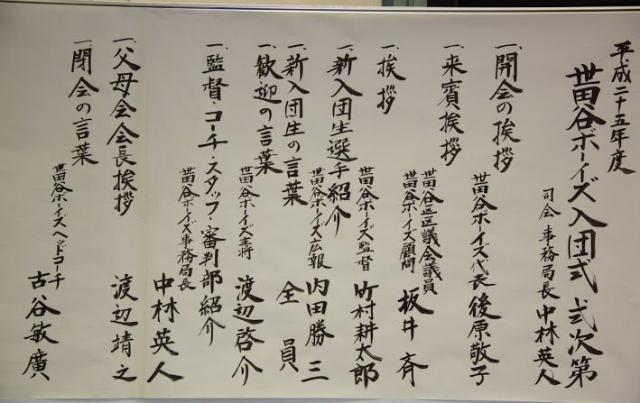 平成二十五年度
世田谷ボーイズ入団式 式次第
司会 事務局長 中林英人
一、開会の挨拶
世田谷ボーイズ代表 後原敬子
一、来賓挨拶
世田谷区区議会議員
世田谷ボーイズ顧問 板井斉
一、挨拶
世田谷ボーイズ監督 竹村耕太郎
一、新入団生選手紹介
世田谷ボーイズ広報 内田勝三
一、新入団生の言葉 全員
一、歓迎の言葉
世田谷ボーイズ主将 渡辺啓介
一、監督・コーチ・スタッフ・審判部紹介
世田谷ボーイズ事務局長 中林英人
一、父母会会長挨拶 渡辺靖之
一、閉会の言葉
世田谷ボーイズヘッドコーチ 古谷敏廣